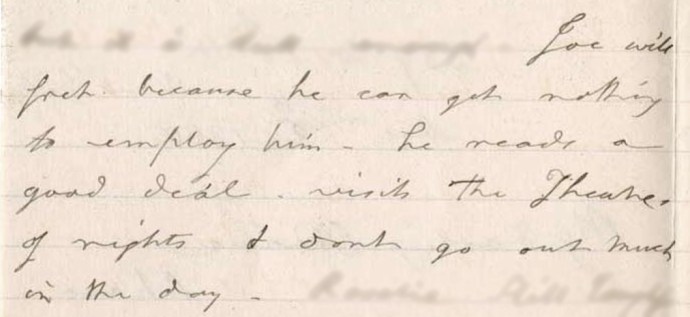 Joe will
fret because he can get nothing
to employ him - he reads a
good deal. visits the Theatres
of nights & dont go out much
in the day -